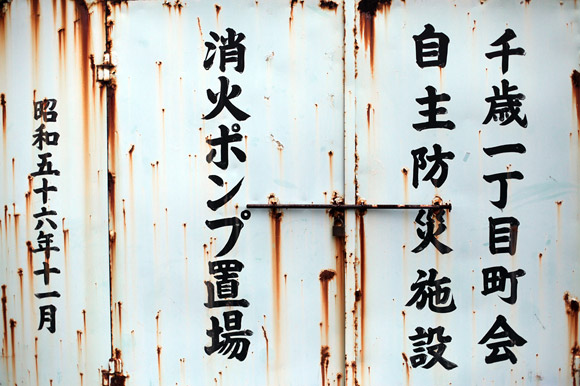 千歳一丁目町会
自主防災施設
消火ポンプ置場
昭和五十六年十一月